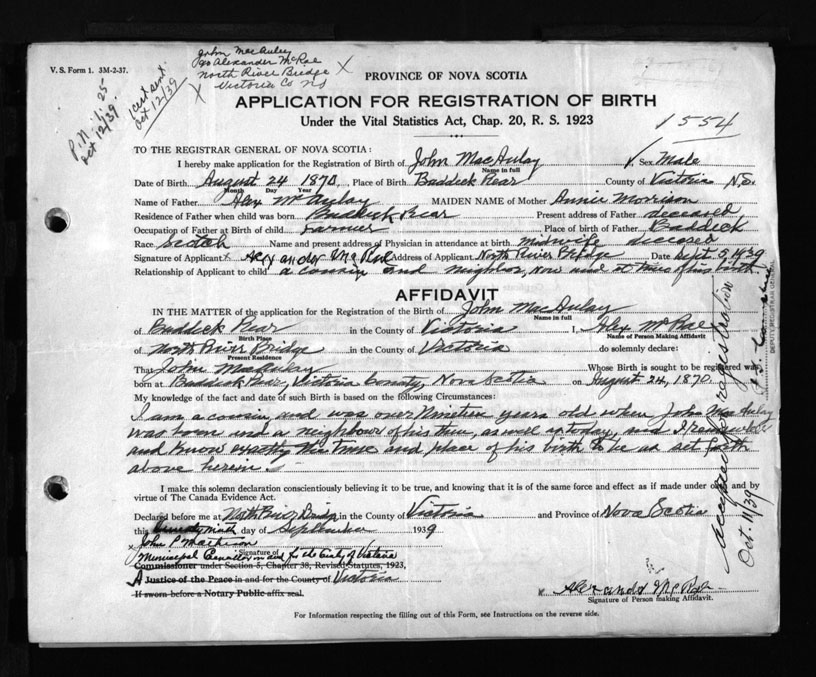 V. S. Form 1. 3M-2-37.
John MacAulay
c/o Alexander McRae
North River Bridge
Victoria Co NS
X
X
P.N. 4. 25
Oct 12/39.
1 cert sent
Oct 12/39
PROVINCE OF NOVA SCOTIA
APPLICATION FOR REGISTRATION OF BIRTH
Under the Vital Statistics Act, Chap. 20, R. S. 1923
1554
TO THE REGISTRAR GENERAL OF NOVA SCOTIA:
I hereby make application for the Registration of Birth of John MacAulay Sex Male
Name in full
Date of Birth August 24 1870, Place of Birth Baddeck Rear County of Victoria N.S.
Month Day Year
Name of Father Alex McAulay MAIDEN NAME of Mother Annie Morrison
Residence of Father when child was born Baddeck Rear Present address of Father deceased
Occupation of Father at Birth of child farmer Place of birth of Father Baddeck
Race Scotch Name and present address of Physician in attendance at birth midwife deceased
Signature of Applicant Alexander McRae Address of Applicant North River Bridge Date Sept. 5, 1939
Relationship of Applicant to child a cousin and neighbor, now and at time of his birth
AFFIDAVIT
IN THE MATTER of the application for the Registration of Birth of John MacAulay
Name in full
of Baddeck Rear in the County of Victoria I, Alex McRae
Birth Place
Name of Person Making Affidavit
of North River Bridge in the County of Victoria do solemnly declare:
Present Residence
That John MacAulay Whose Birth is sought to be registered was
born at Baddeck Rear, Victoria County, Nova Scotia on August 24, 1870.
My knowledge of the fact and date of such Birth is based on the following Circumstances:
I am a cousin and was over Nineteen years old when John MacAulay
was born and a neighbour of his then, as well as today, and I remember
and know exactly the time and place of his birth to be as set forth
above herein.
I make this solemn declaration conscientiously believing it to be true, and knowing that it is of the same force and effect as if made under oath, and by
virtue of The Canada Evidence Act.
Declared before me at North River Bridge in the County of Victoria and Province of Nova Scotia
this Twenty ninth day of September 1939
John P Matheson
Signature of
Municipal Councillor in and for the County of Victoria
Commissioner under Section 5, Chapter 38, Revised Statutes, 1923,
A Justice of the Peace in and for the County of Victoria
If sworn before a Notary Public affix seal.
Alexander McRae
Signature of Person making Affidavit.
For Information respecting the filling out of this Form, see Instructions on the reverse side.
accepted for registration
Oct 11/39
DEPUTY REGISTRAR GENERAL